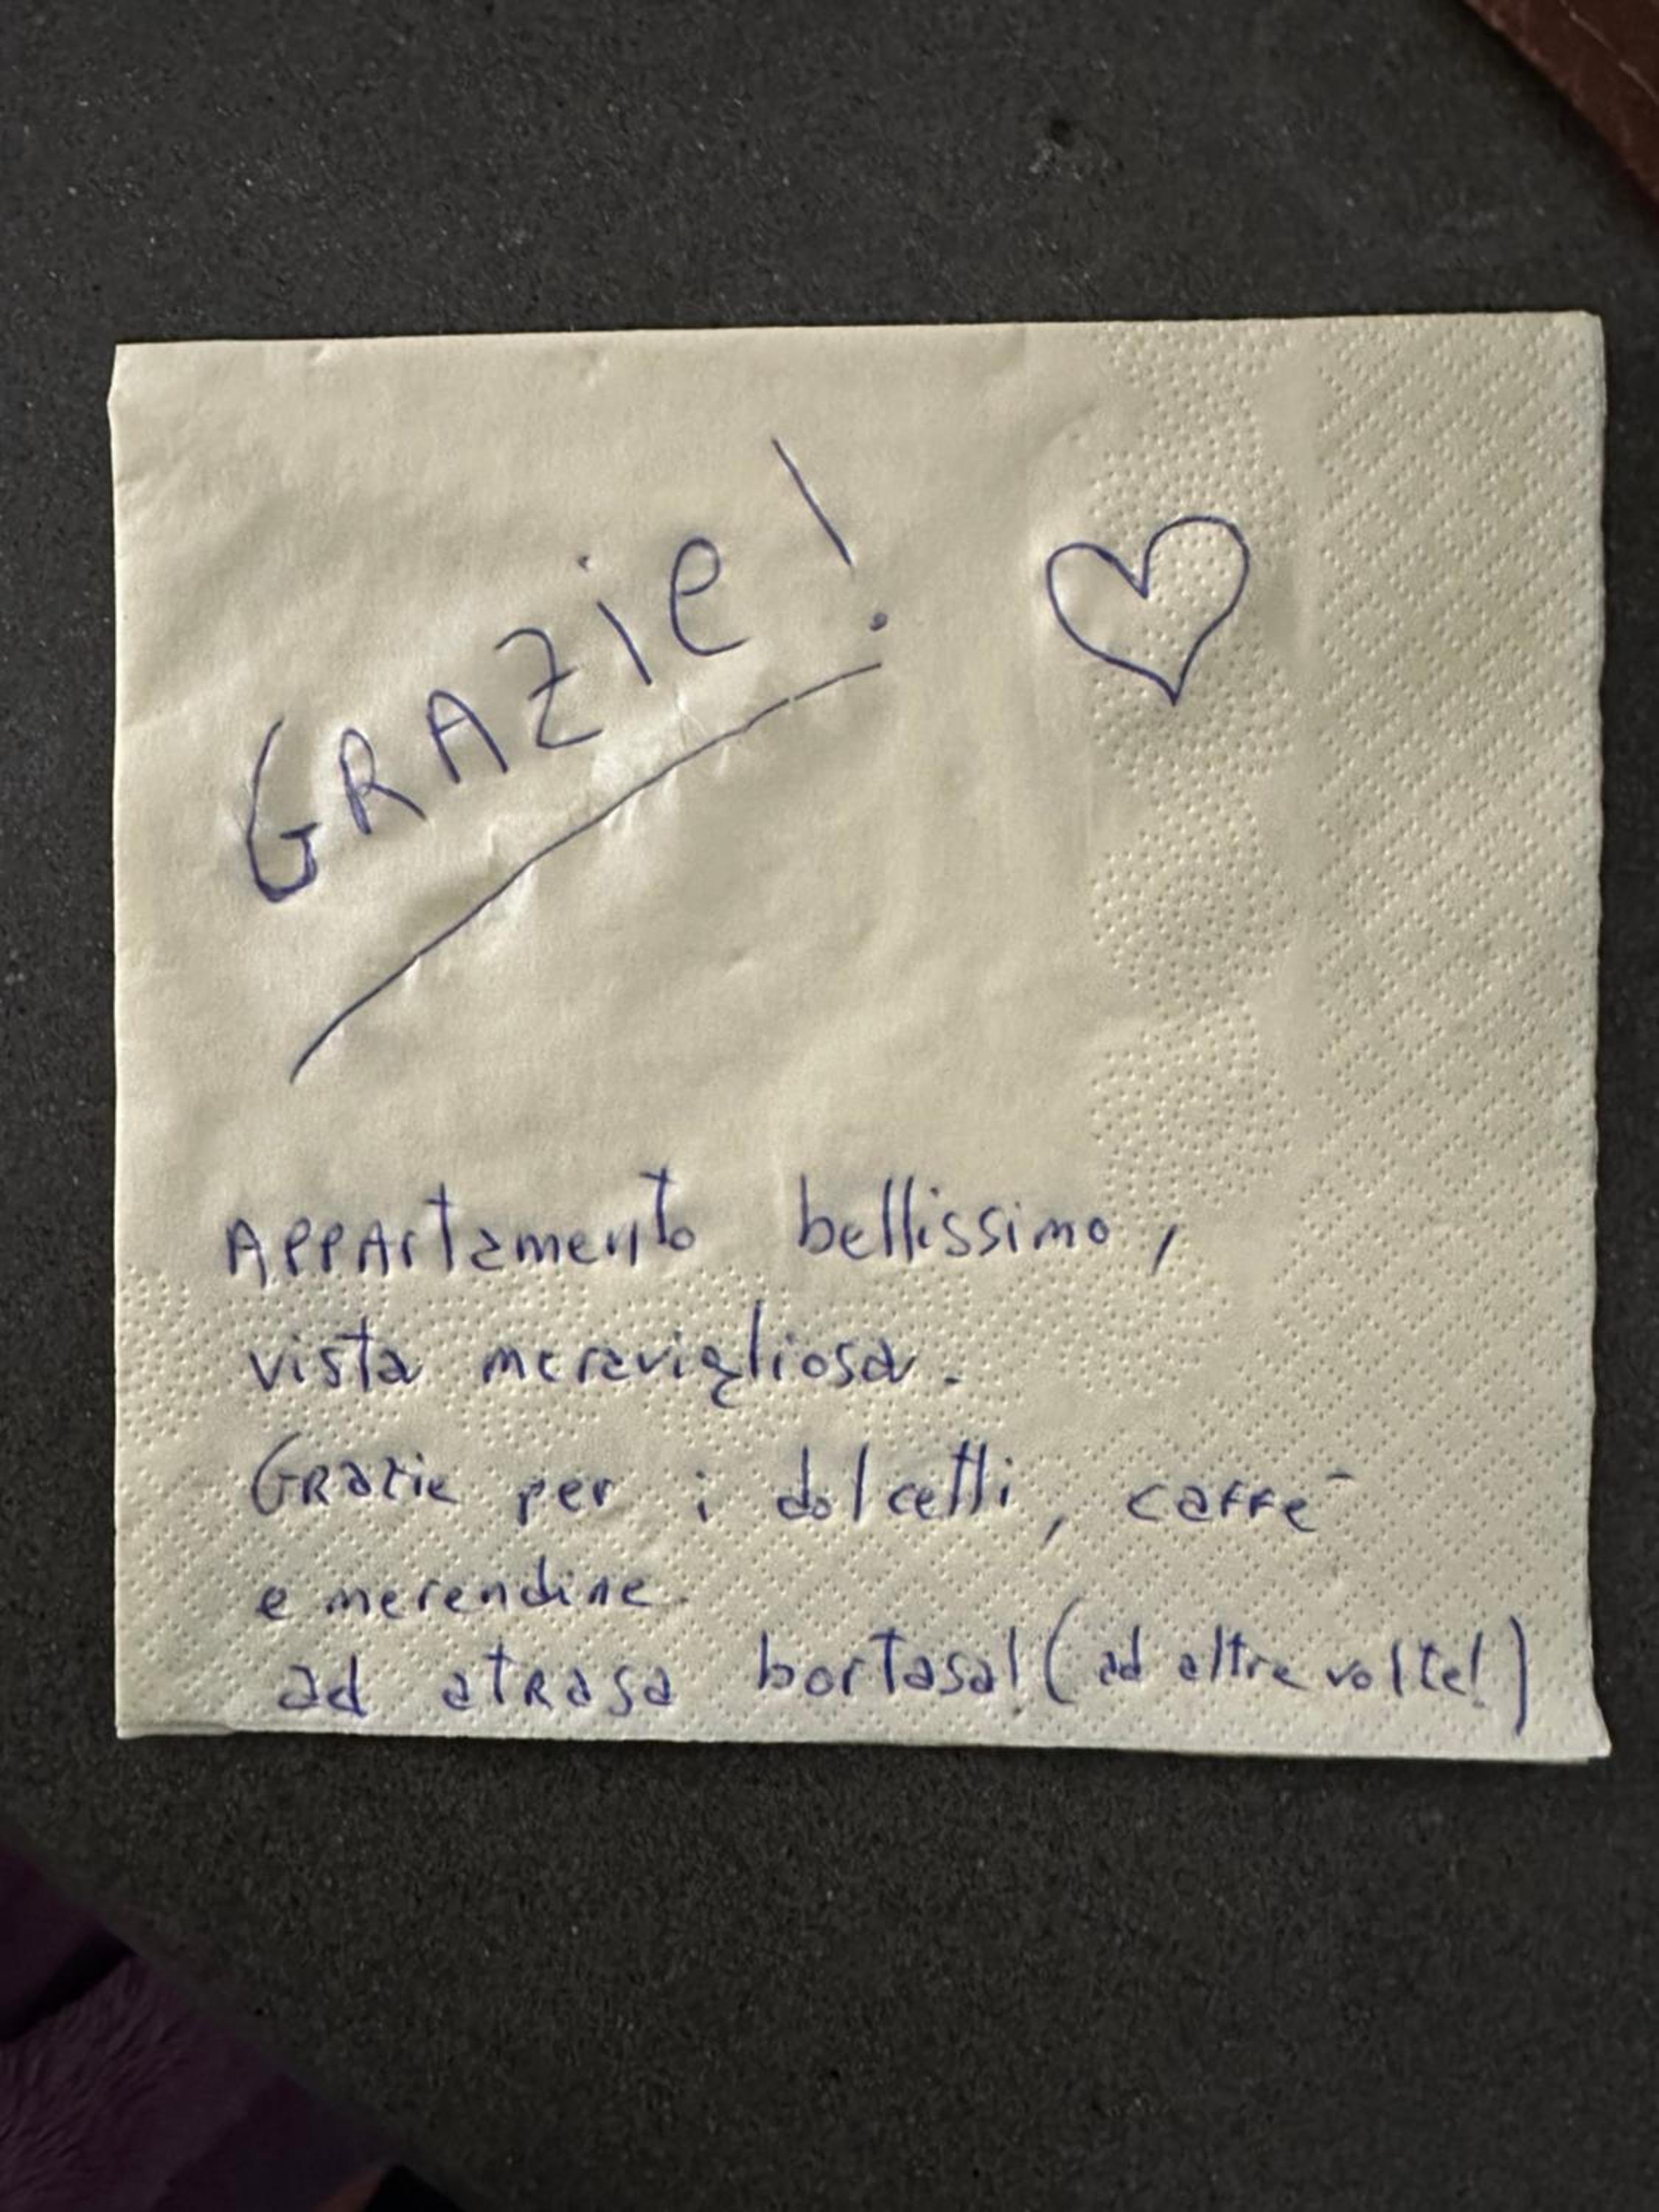 GRAZie!
APPArtamento bellissimo,
vista meravigliosa.
GRazie per i dolcetti, caffè
e merendine
ad atRasa bortasa! (ad altre volte!)